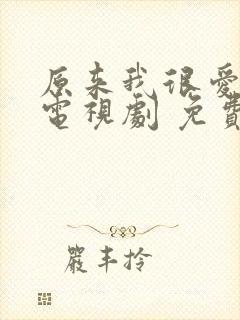 原来我很爱
電視劇 免費
嚴丰拎